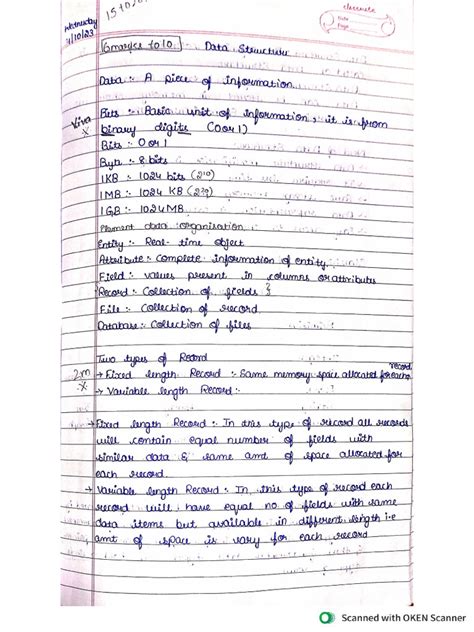 classmate
Date
Page
Wednesday
1/10/23
6 marks to 10. Data Structure
Data :- A piece of information
Viva
x
Bits :- Basic unit of information, it is from
binary digits (0 or 1)
Bits :- 0 or 1
Byte :- 8 bits
1KB :- 1024 bits (2^10)
1MB :- 1024 KB
1GB :- 1024 MB
data organisation
Entity :- Real-time object
Attribute :- Complete information of entity
Field :- values present in columns or attributes
Record :- Collection of fields }
File :- Collection of record
Database :- Collection of files
Two types of Record
2m
x
→ Fixed length Record :- Same memory space allocated for each record
→ Variable length Record :-
→ Fixed length Record :- In this type of record all records
will contain equal number of fields with
similar data & same amt of space allocated for
each record
→ Variable length Record :- In this type of record each
record will have equal no of fields with same
data items but available in different length i.e
amt of space is vary for each record
Scanned with OKEN Scanner